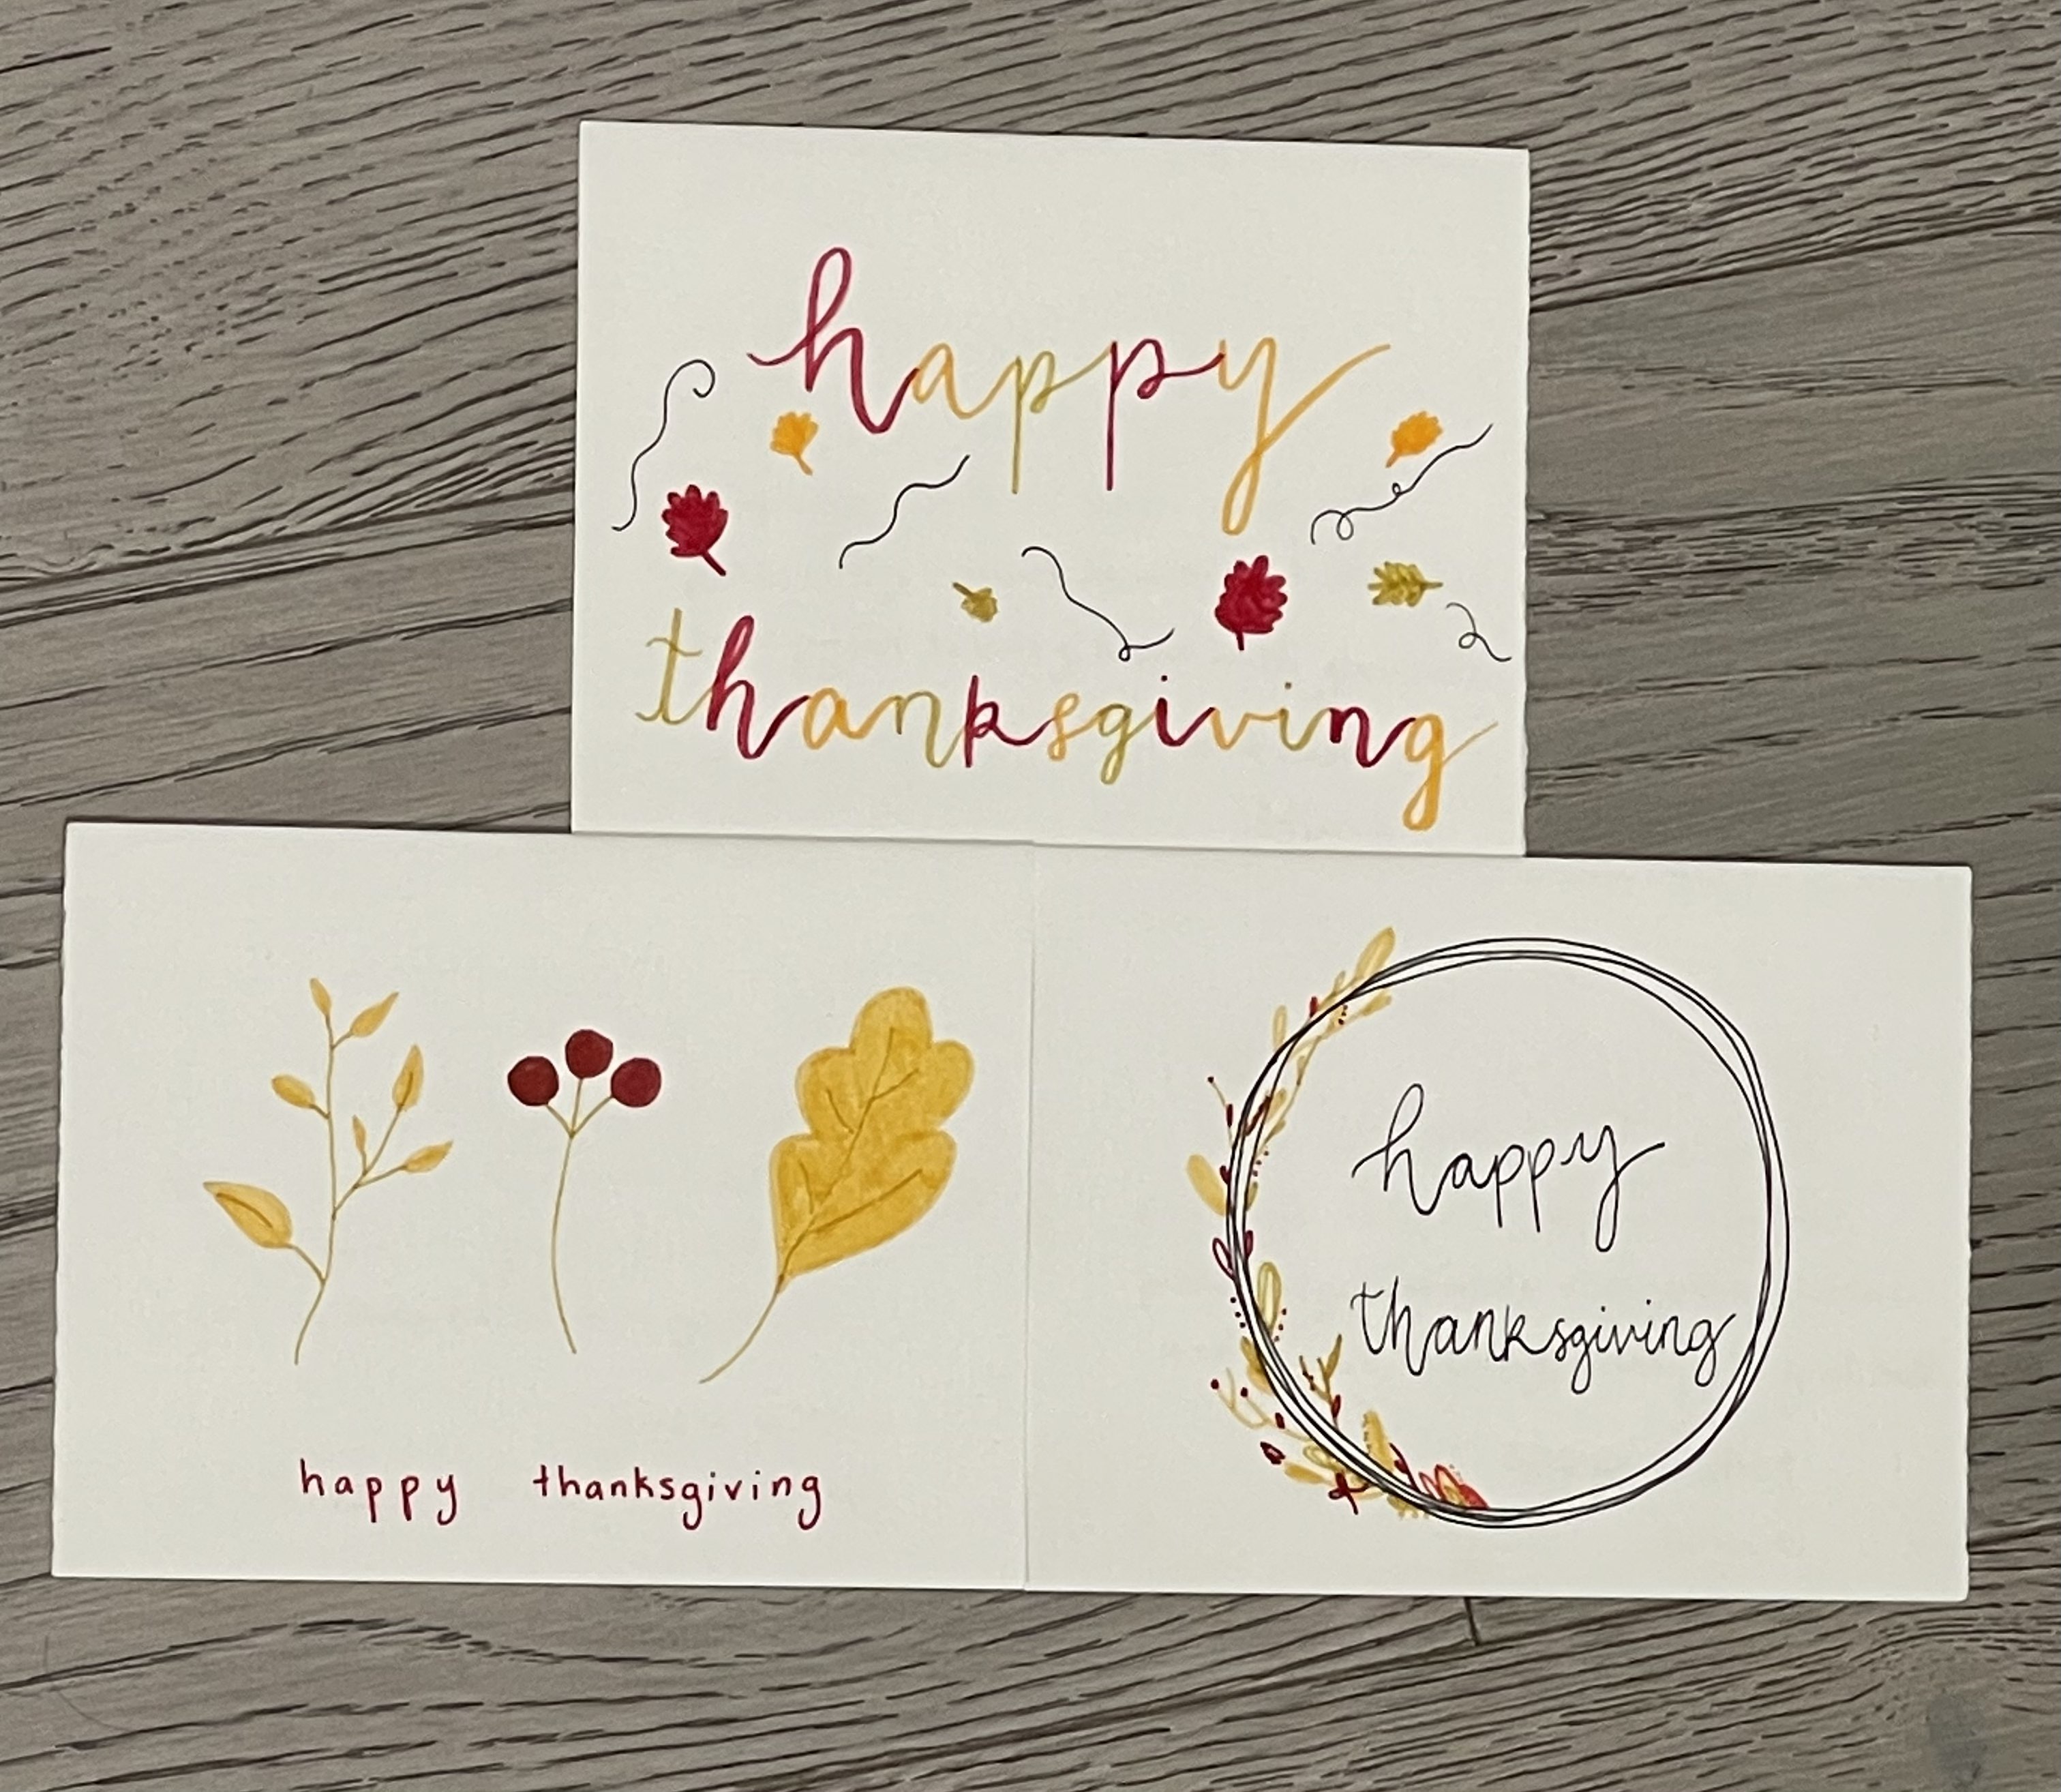 happy
thanksgiving
happy thanksgiving
happy
thanksgiving